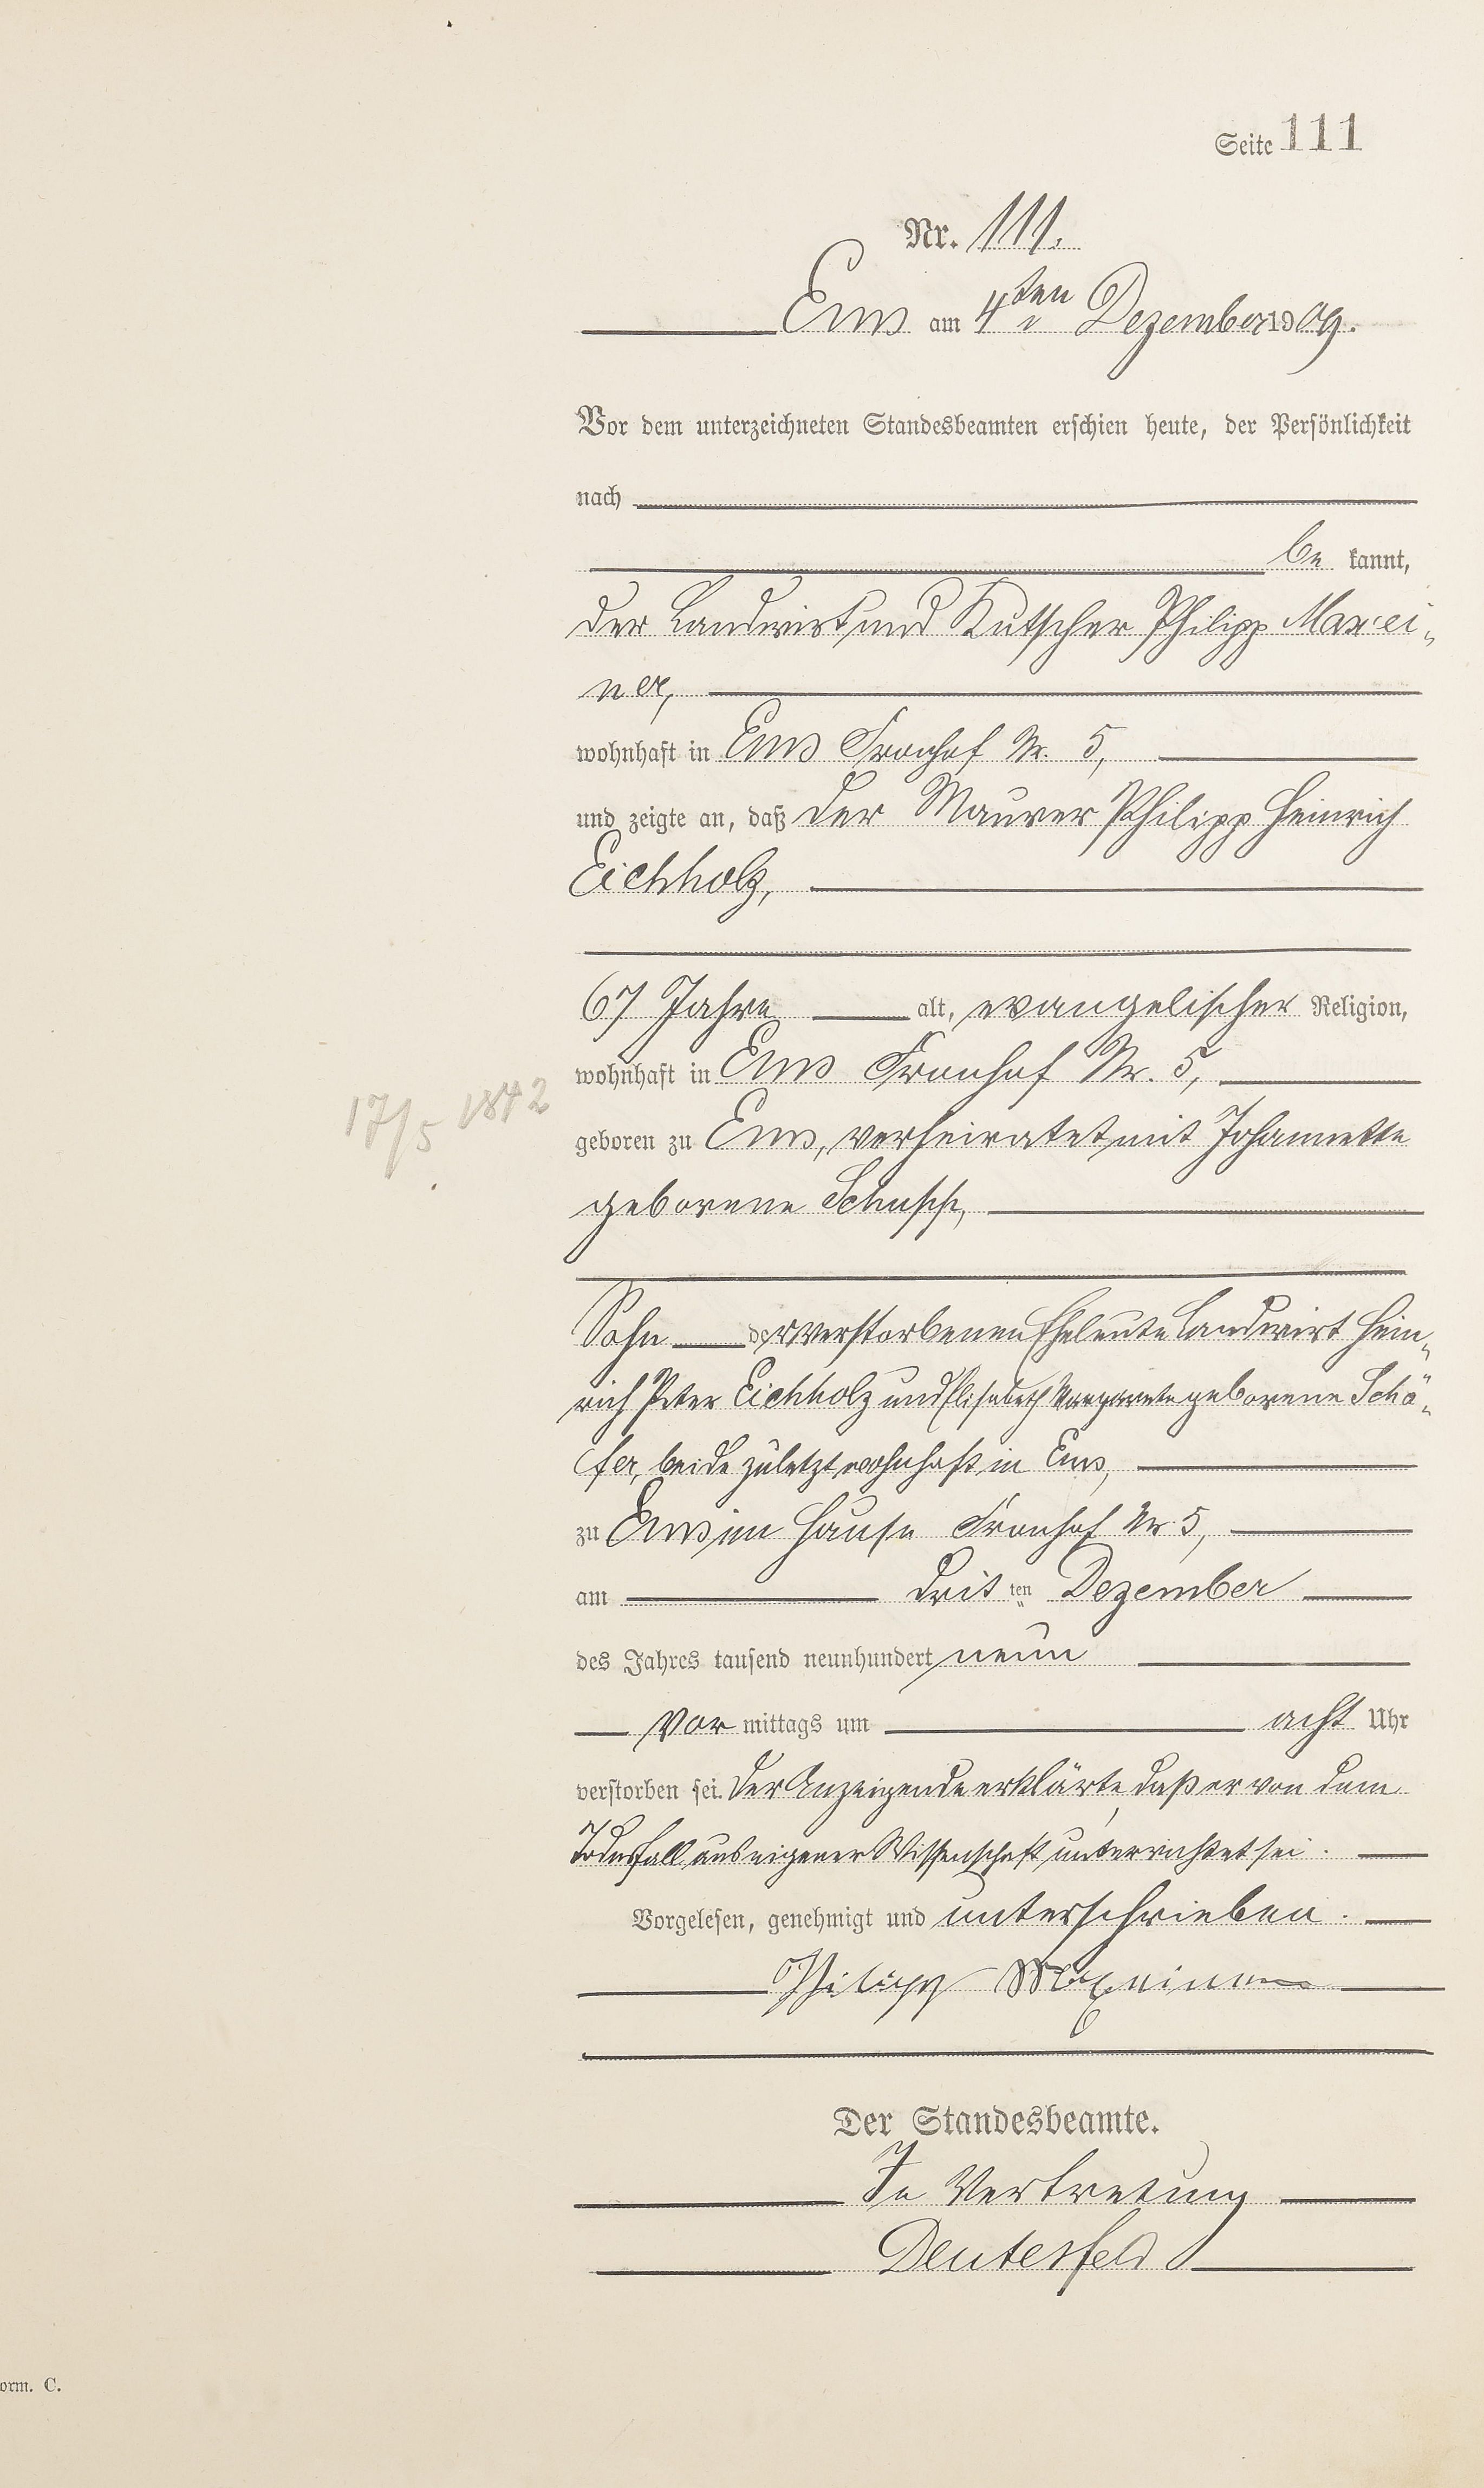 Seite 111
Nr. 111.
Ems am 4ten Dezember 1909.
Vor dem unterzeichneten Standesbeamten erschien heute, der Persönlichkeit
nach
be kannt,
der Landwirt und Kutscher Philipp Maxei-
ner,
wohnhaft in Ems Fronhof Nr. 5,
und zeigte an, daß der Maurer Philipp Heinrich
Eichholz,
67 Jahre alt, evangelischer Religion,
wohnhaft in Ems Fronhof Nr. 5,
17/5 1842
geboren zu Ems, verheiratet mit Johannette
geborene Schupp,
Sohn der verstorbenen Eheleute Landwirt Hein-
rich Peter Eichholz und Elisabeth Margarete geborene Schä-
fer, beide zuletzt wohnhaft in Ems,
zu Ems im Hause Fronhof Nr. 5,
am drit ten Dezember
des Jahres tausend neunhundert neun
Vor mittags um acht Uhr
verstorben sei. Der Anzeigende erklärte, daß er von dem
Todesfall aus eigener Wissenschaft unterrichtet sei.
Vorgelesen, genehmigt und unterschrieben.
Philipp Maxeiner
Der Standesbeamte.
In Vertretung
Deutesfeld
orm. C.